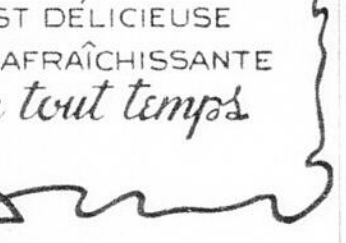 ST DÉLICIEUSE
AFRAÎCHISSANTE
tout temps